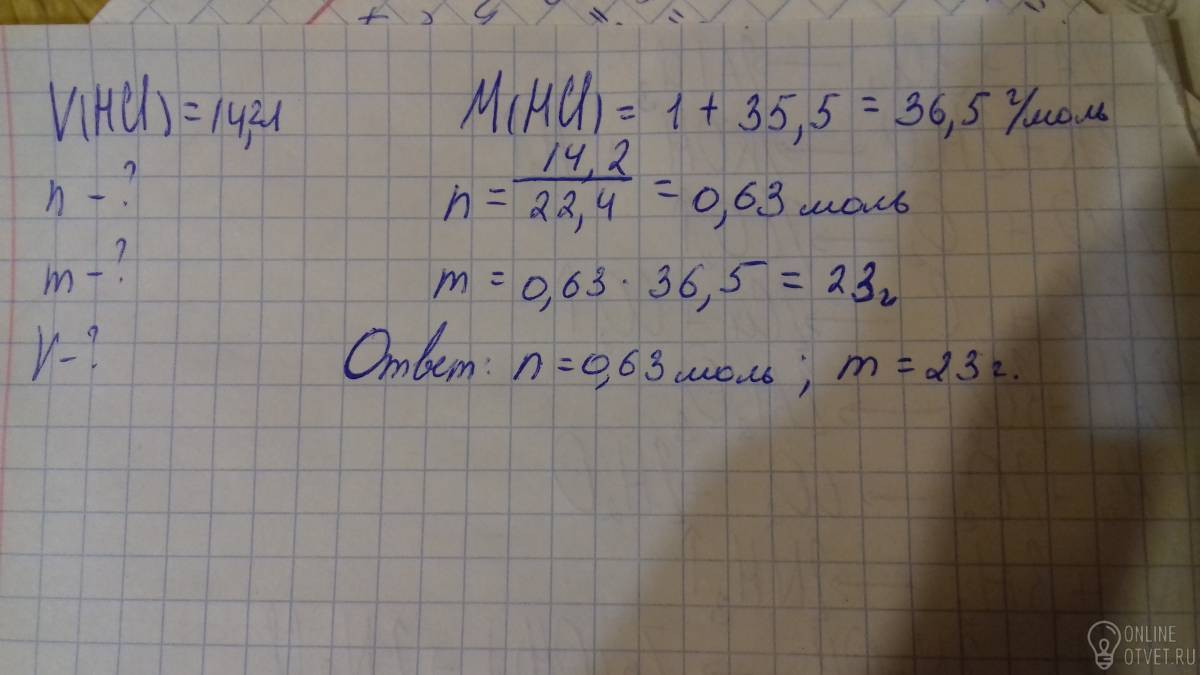 V(HCl) = 14,2л
n - ?
m - ?
V - ?
M(HCl) = 1 + 35,5 = 36,5 г/моль
n = 14,2/22,4 = 0,63 моль
m = 0,63 · 36,5 = 23г
Ответ: n = 0,63 моль ; m = 23 г.
ONLINE
OTVET.RU